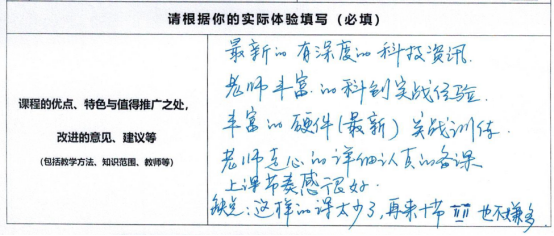 请根据你的实际体验填写（必填）
课程的优点、特色与值得推广之处，
改进的意见、建议等
（包括教学方法、知识范围、教师等）
最新的有深度的科技资讯.
老师丰富的科创实战经验.
丰富的硬件(最新)实战训练.
老师走心的详细认真的备课
上课节奏感很好.
缺点:这样的课太少了,再来十节 也不嫌多.